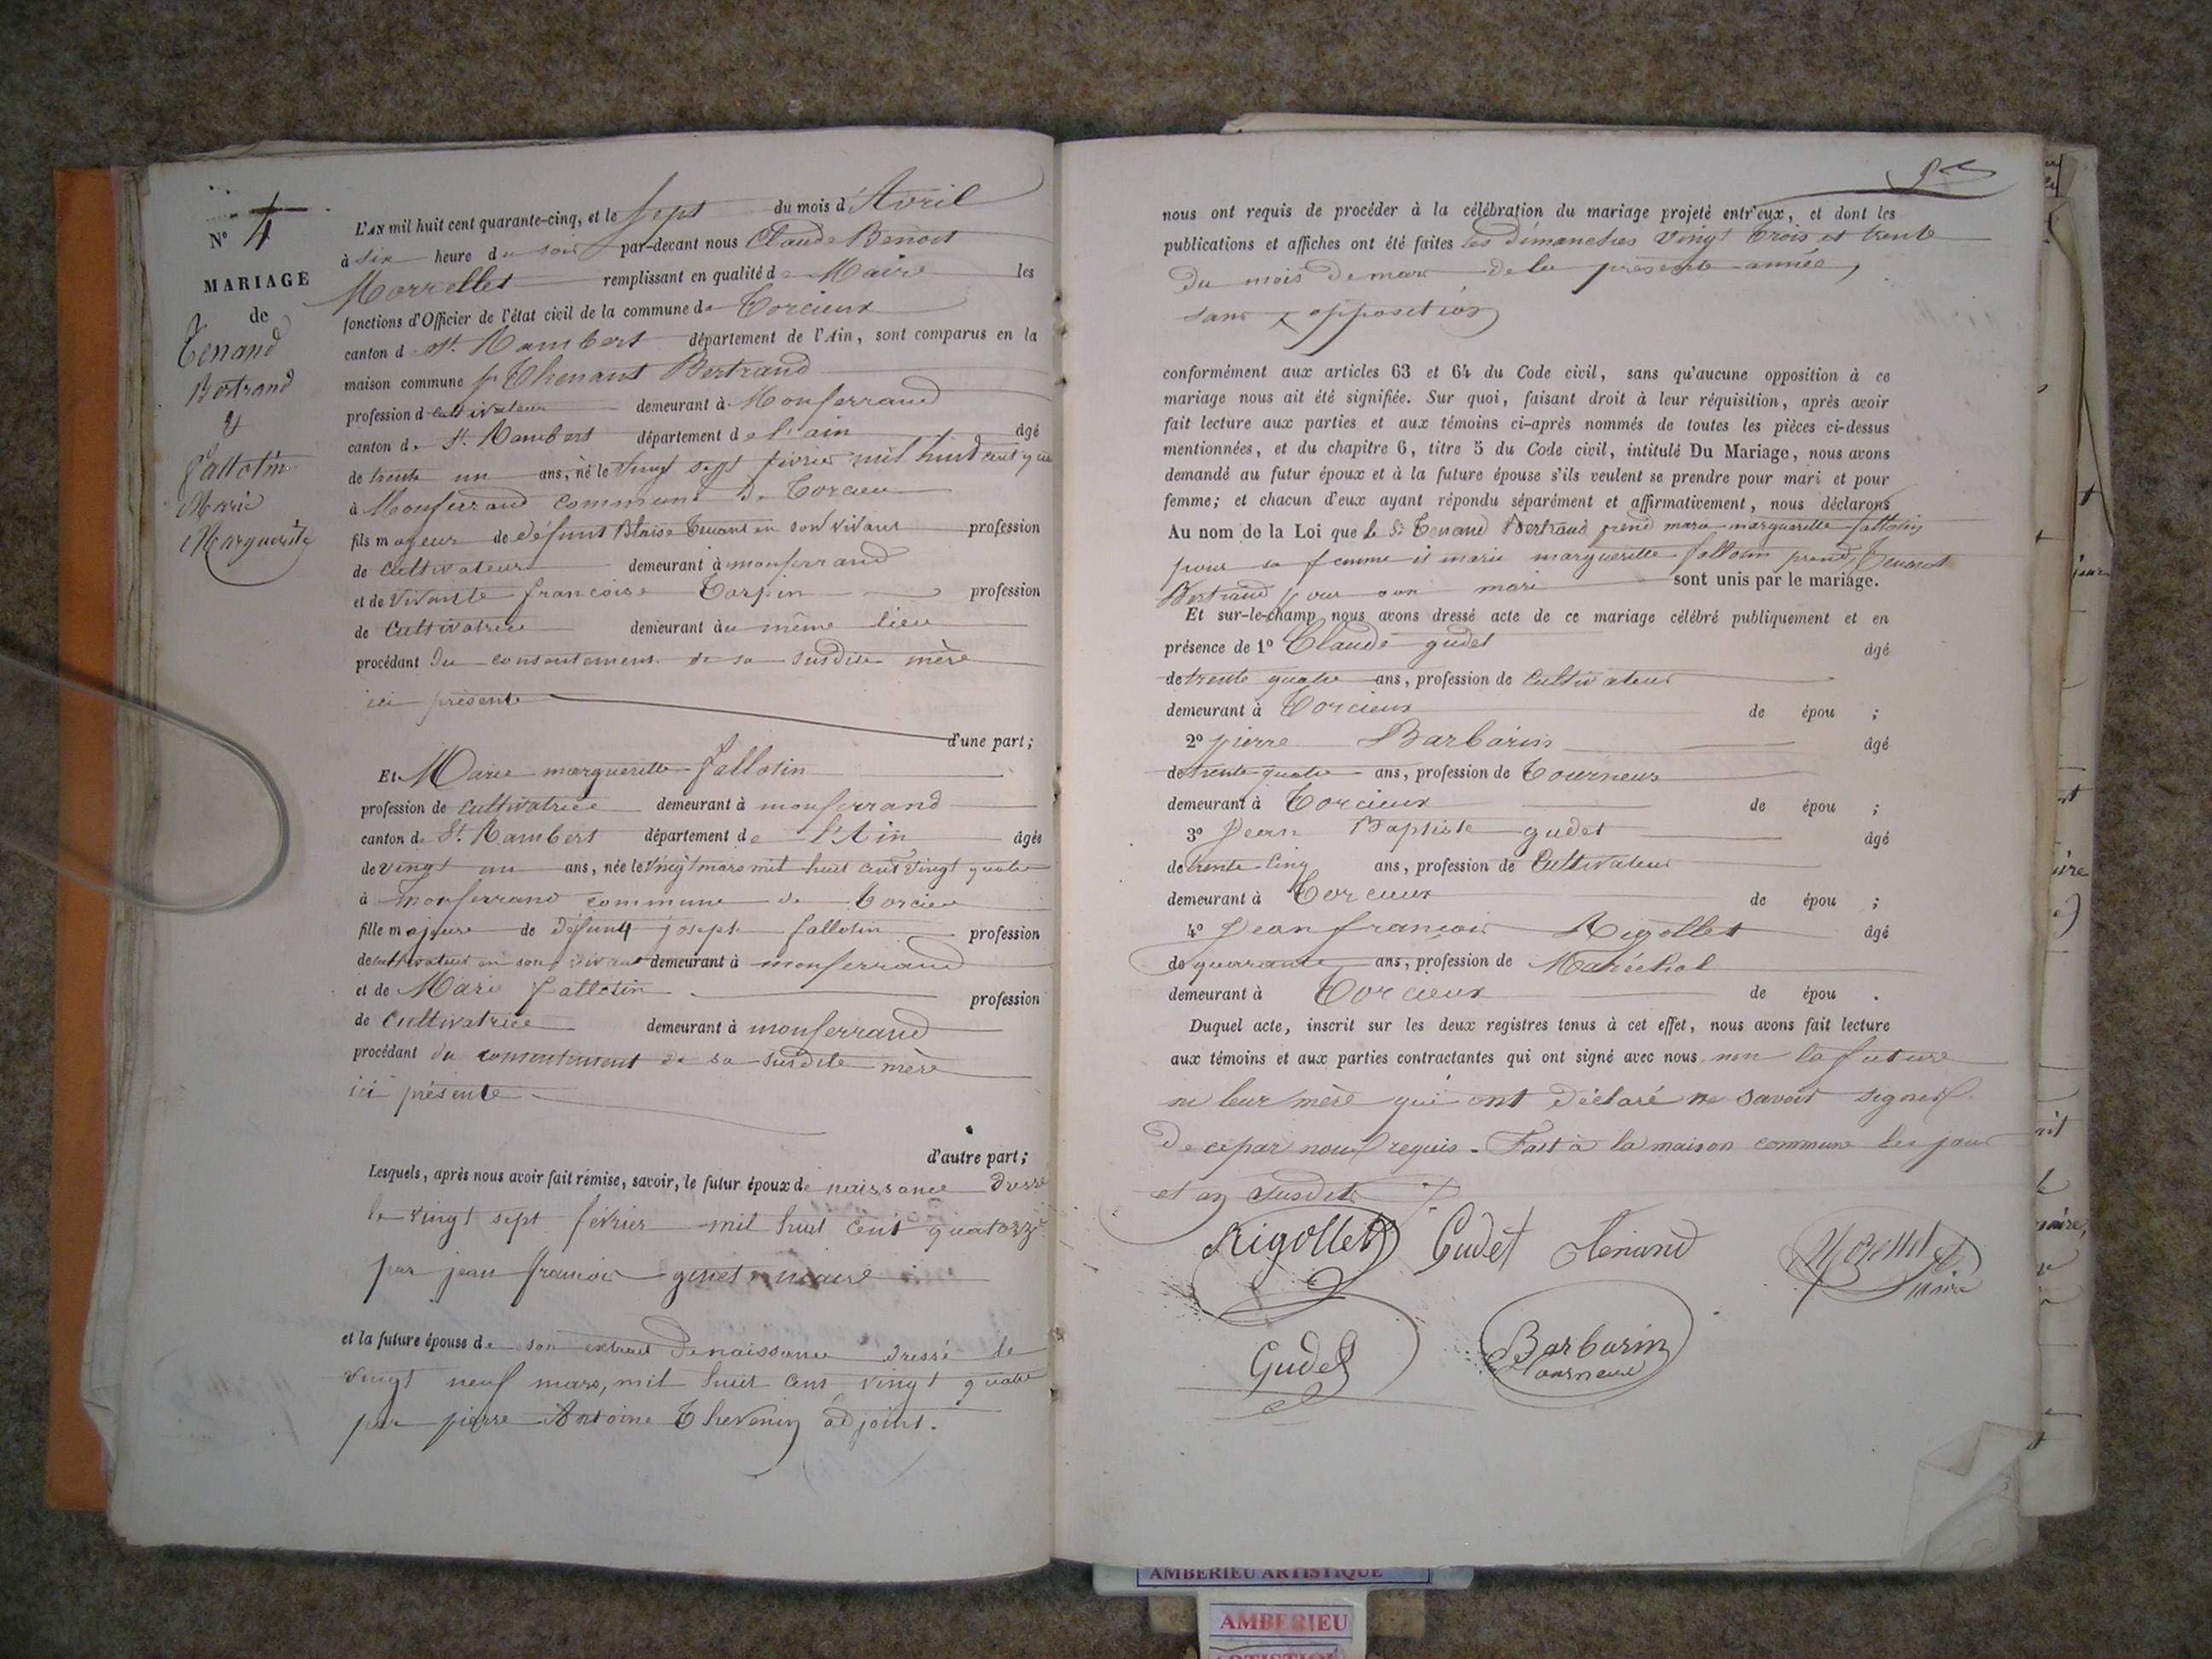 N° 4
MARIAGE
de
Tenand
Bertrand
&
fallotin
Marie
Marguerite
L'AN mil huit cent quarante-cinq, et le sept du mois d'Avril
à six heure du soir par-devant nous Claude Benoit
Morrellet remplissant en qualité de Maire les
fonctions d'Officier de l'état civil de la commune de Torcieux
canton d St. Rambert département de l'Ain, sont comparus en la
maison commune Thenant Bertrand
profession d cultivateur demeurant à Monferrand
canton de St. Rambert département de l'ain âgé
de trente un ans, né le vingt sept février mil huit cent
à Monferrand commune de Torcieu
fils majeur de défunt Blaise Tenant en son vivant profession
de cultivateur demeurant à monferrand
et de vivante francoise Torpin profession
de Cultivatrice demeurant au même lieu
procédant du consentement de sa susdite mère
ici présente
d'une part;
Et Marie margueritte fallotin
profession de cultivatrice demeurant à monferrand
canton de St. Rambert département de l'Ain âgée
de vingt un ans, née le vingt mars mil huit cent vingt quatre
à monferrand commune de Torcieu
fille majeure de défunt joseph fallotin profession
de cultivateur en son vivant demeurant à monferrand
et de Marie fallotin profession
de Cultivatrice demeurant à monferrand
procédant du consentement de sa susdite mère
ici présente
d'autre part;
Lesquels, après nous avoir fait rémise, savoir, le futur époux de naissance dressé
le vingt sept février mil huit cent quatorze
par jean francois ginet maire
et la future épouse de son extrait de naissance dressé le
vingt neuf mars, mil huit cent vingt quatre
par pierre Antoine Thevenin adjoint.
nous ont requis de procéder à la célébration du mariage projeté entr'eux, et dont les
publications et affiches ont été faites les dimanches vingt trois et trente
du mois de mars de la présente année,
sans opposition
conformément aux articles 63 et 64 du Code civil, sans qu'aucune opposition à ce
mariage nous ait été signifiée. Sur quoi, faisant droit à leur réquisition, après avoir
fait lecture aux parties et aux témoins ci-après nommés de toutes les pièces ci-dessus
mentionnées, et du chapitre 6, titre 5 du Code civil, intitulé Du Mariage, nous avons
demandé au futur époux et à la future épouse s'ils veulent se prendre pour mari et pour
femme; et chacun d'eux ayant répondu séparément et affirmativement, nous déclarons
Au nom de la Loi que le Sr Tenand Bertrand prend marie margueritte fallotin
pour sa femme et marie marguerite fallotin prend Tenant
Bertrand pour son mari sont unis par le mariage.
Et sur-le-champ nous avons dressé acte de ce mariage célébré publiquement et en
présence de 1° Claude gudet âgé
de trente quatre ans, profession de cultivateur
demeurant à Torcieux de épou ;
2° pierre Barbarin âgé
de trente quatre ans, profession de Tourneur
demeurant à Torcieux de épou ;
3° Jean Baptiste gudet âgé
de trente cinq ans, profession de Cultivateur
demeurant à Torcieux de épou ;
4° Jean francois Rigollet âgé
de quarante ans, profession de Maréchal
demeurant à Torcieux de épou .
Duquel acte, inscrit sur les deux registres tenus à cet effet, nous avons fait lecture
aux témoins et aux parties contractantes qui ont signé avec nous, non la future
ni leur mère qui ont déclaré ne savoir signer
de ce par nous requis. Fait à la maison commune les jour
et an susdit
Rigollet Gudet Tenand Morellet
maire
Gudet Barbarin
Tourneur
AMBERIEU ARTISTIQUE
AMBERIEU
ARTISTIQUE